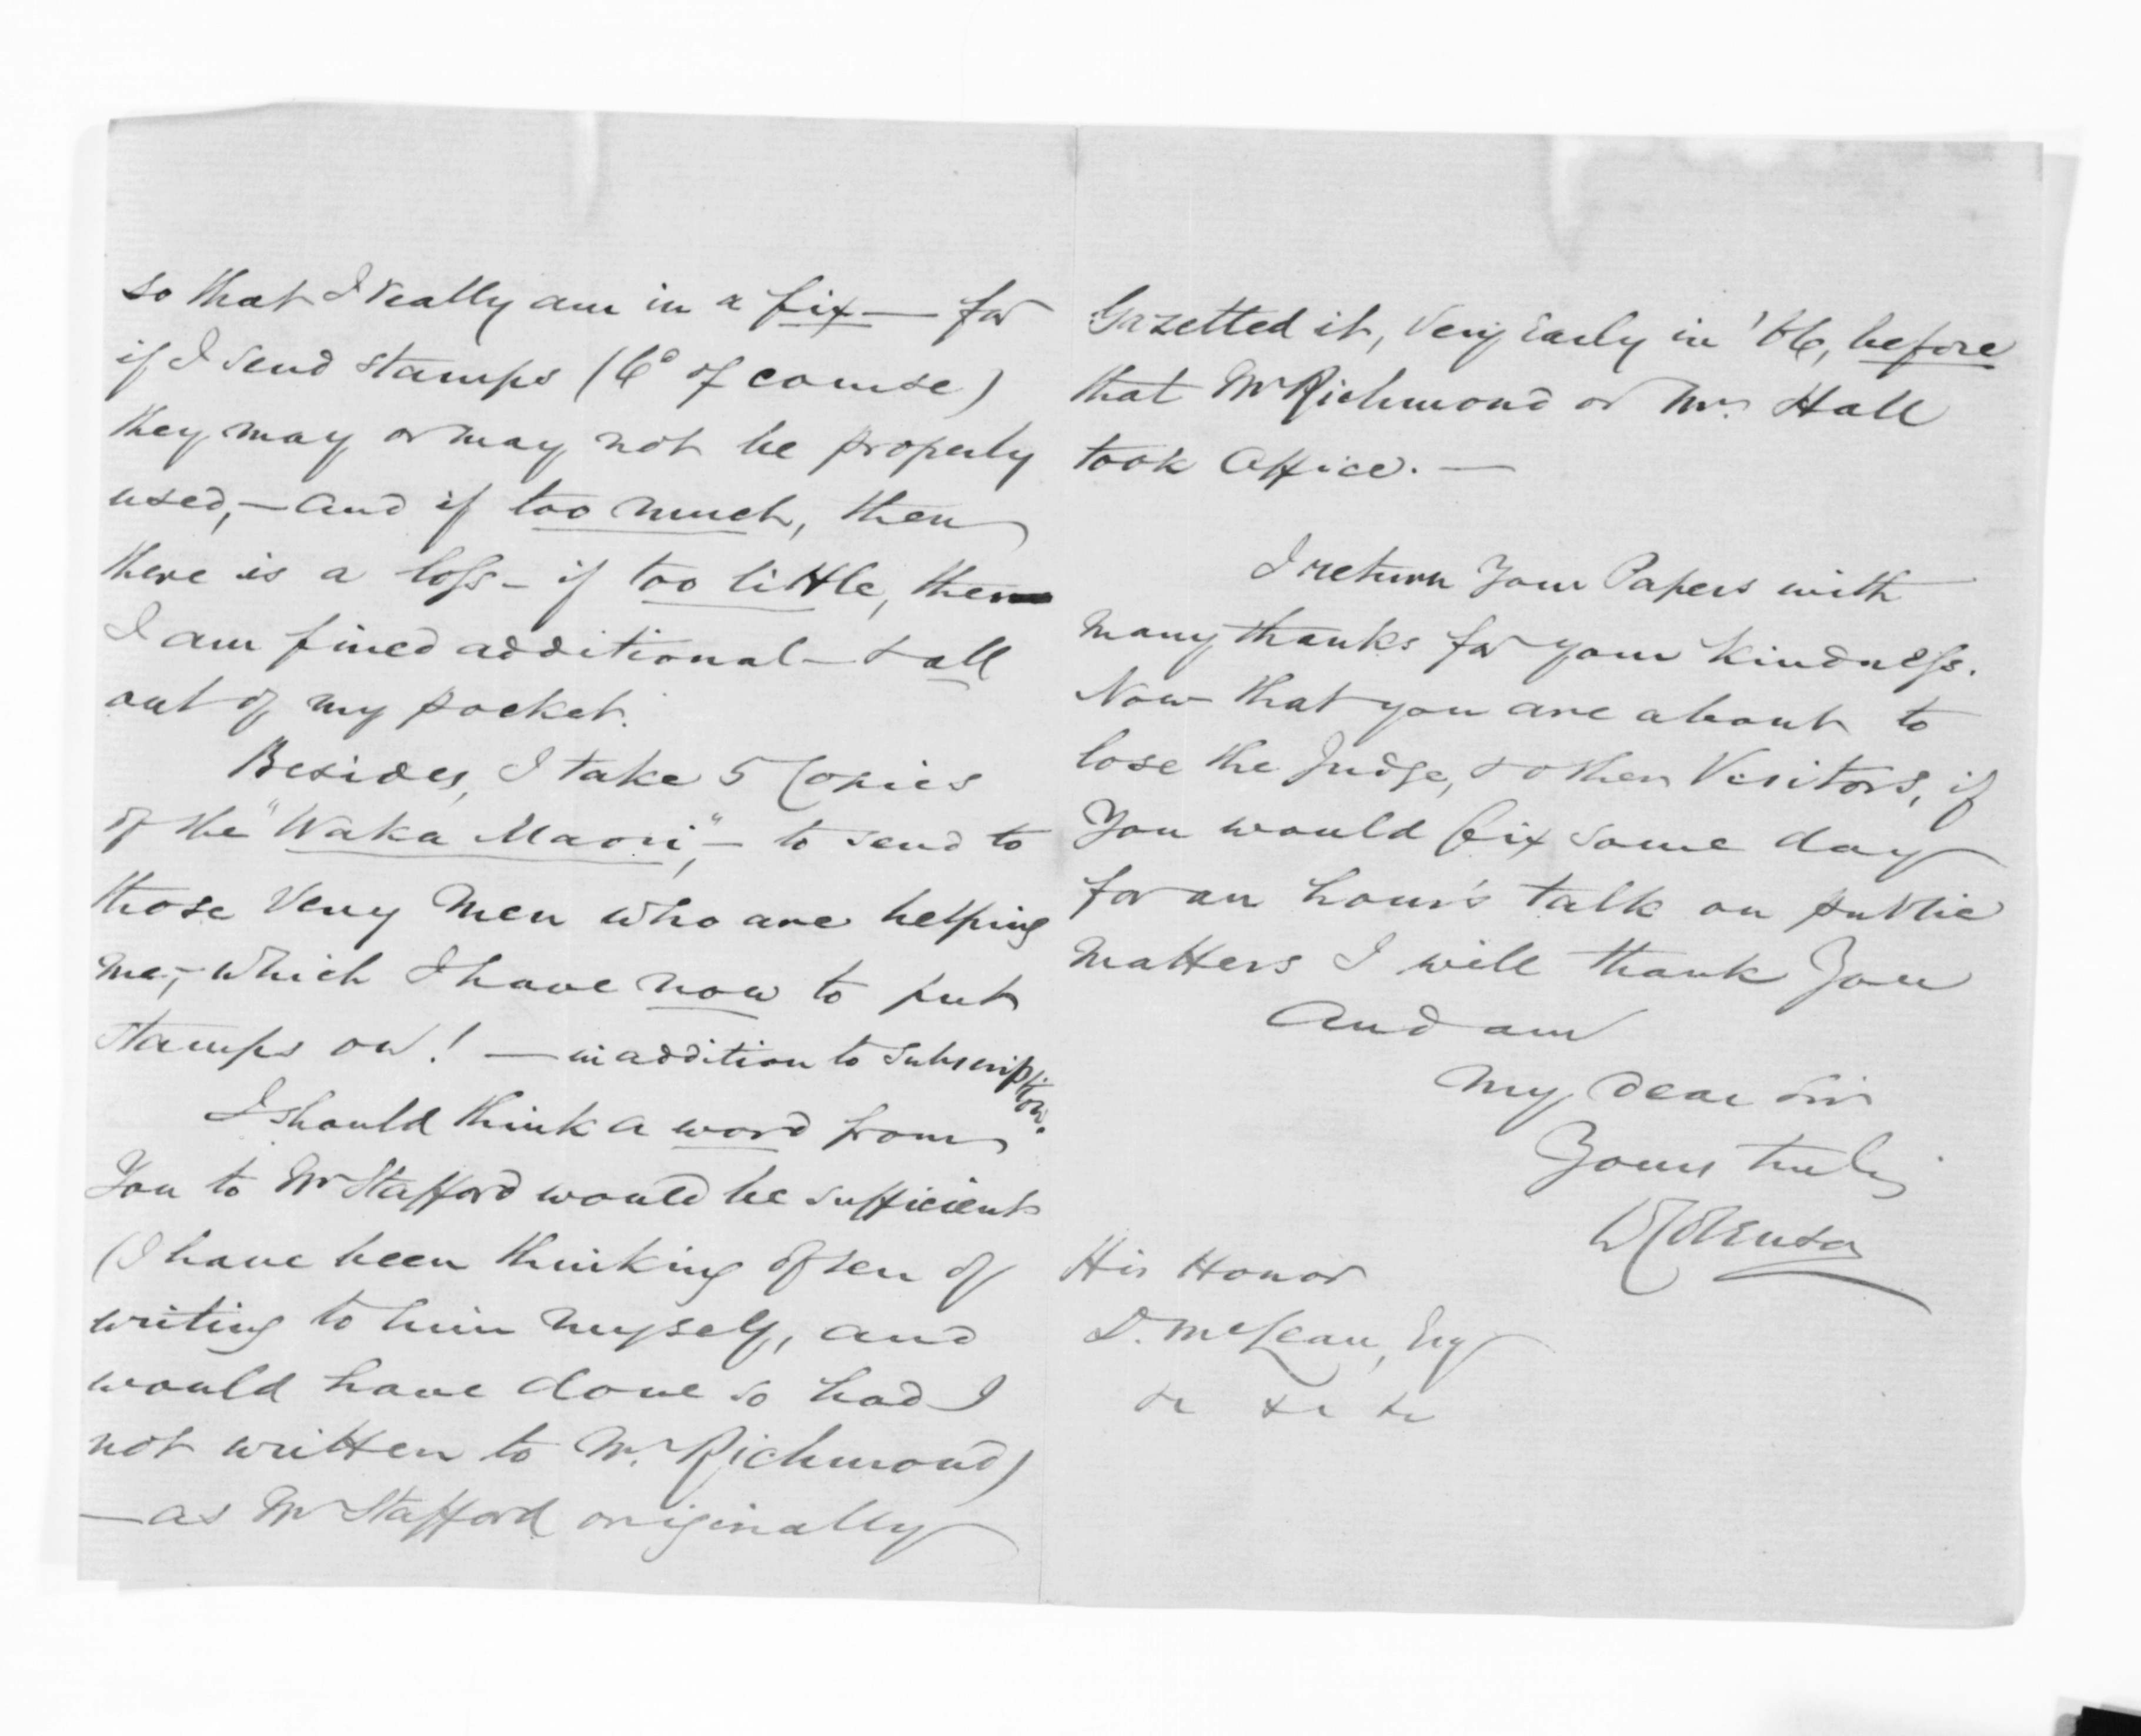 so that I really am in a fix — for
if I send stamps (6d of course)
they may or may not be properly
used, — and if too much, then
there is a loss — if too little, then
I am fined additional — & all
out of my pocket.
Besides, I take 5 Copies
of the "Waka Maori", — to send to
those very men who are helping
me, — which I have now to put
stamps on! — in addition to subscription.
I should think a word from
You to Mr Stafford would be sufficient
(I have been thinking often of
writing to him myself, and
would have done so had I
not written to Mr. Richmond)
— as Mr Stafford originally
Gazetted it, very early in '66, before
that Mr Richmond or Mr. Hall
took Office. —
I return Your Papers with
many thanks for your kindness.
Now that you are about to
lose the Judge, & other Visitors, if
You would fix some day
for an hour's talk on public
matters I will thank You
And am
My dear Sir
Yours truly
W Colenso
His Honor
D. McLean, Esq
&c &c &c